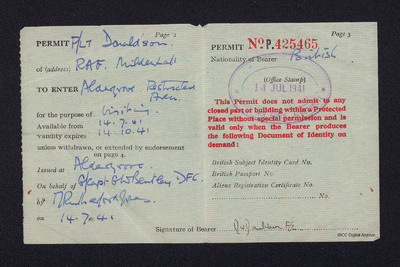 Page 2
PERMIT F/LT Donaldson.
of (address) RAF. Mildenhall
TO ENTER Aldergrove Restricted
Area.
for the purpose of visiting.
Available from 14.7.41
and expires 14.10.41
unless withdrawn, or extended by endorsement
on page 4.
Issued at Aldergrove.
On behalf of DFC.
by
on 14.7.41
Page 3
PERMIT No P.425465
Nationality of Bearer British
(Office Stamp)
14 JUL 1941
This Permit does not admit to any
closed part or building within a Protected
Place without special permission and is
valid only when the Bearer produces
the following Document of Identity on
demand:
British Subject Identity Card No.
British Passport No.
Aliens Registration Certificate No.
Signature of Bearer
IBCC Digital Archive